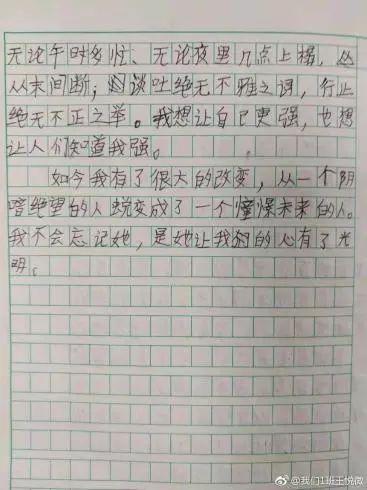 无论午时多忙、无论夜里几点上榻，从
从未间断；谈吐绝无不雅之词，行止
绝无不正之举。我想让自己更强，也想
让人们知道我强。
如今我有了很大的改变，从一个阴
暗绝望的人蜕变成了一个憧憬未来的人。
我不会忘记她，是她让我的心有了光
明。
@我们1班王悦微